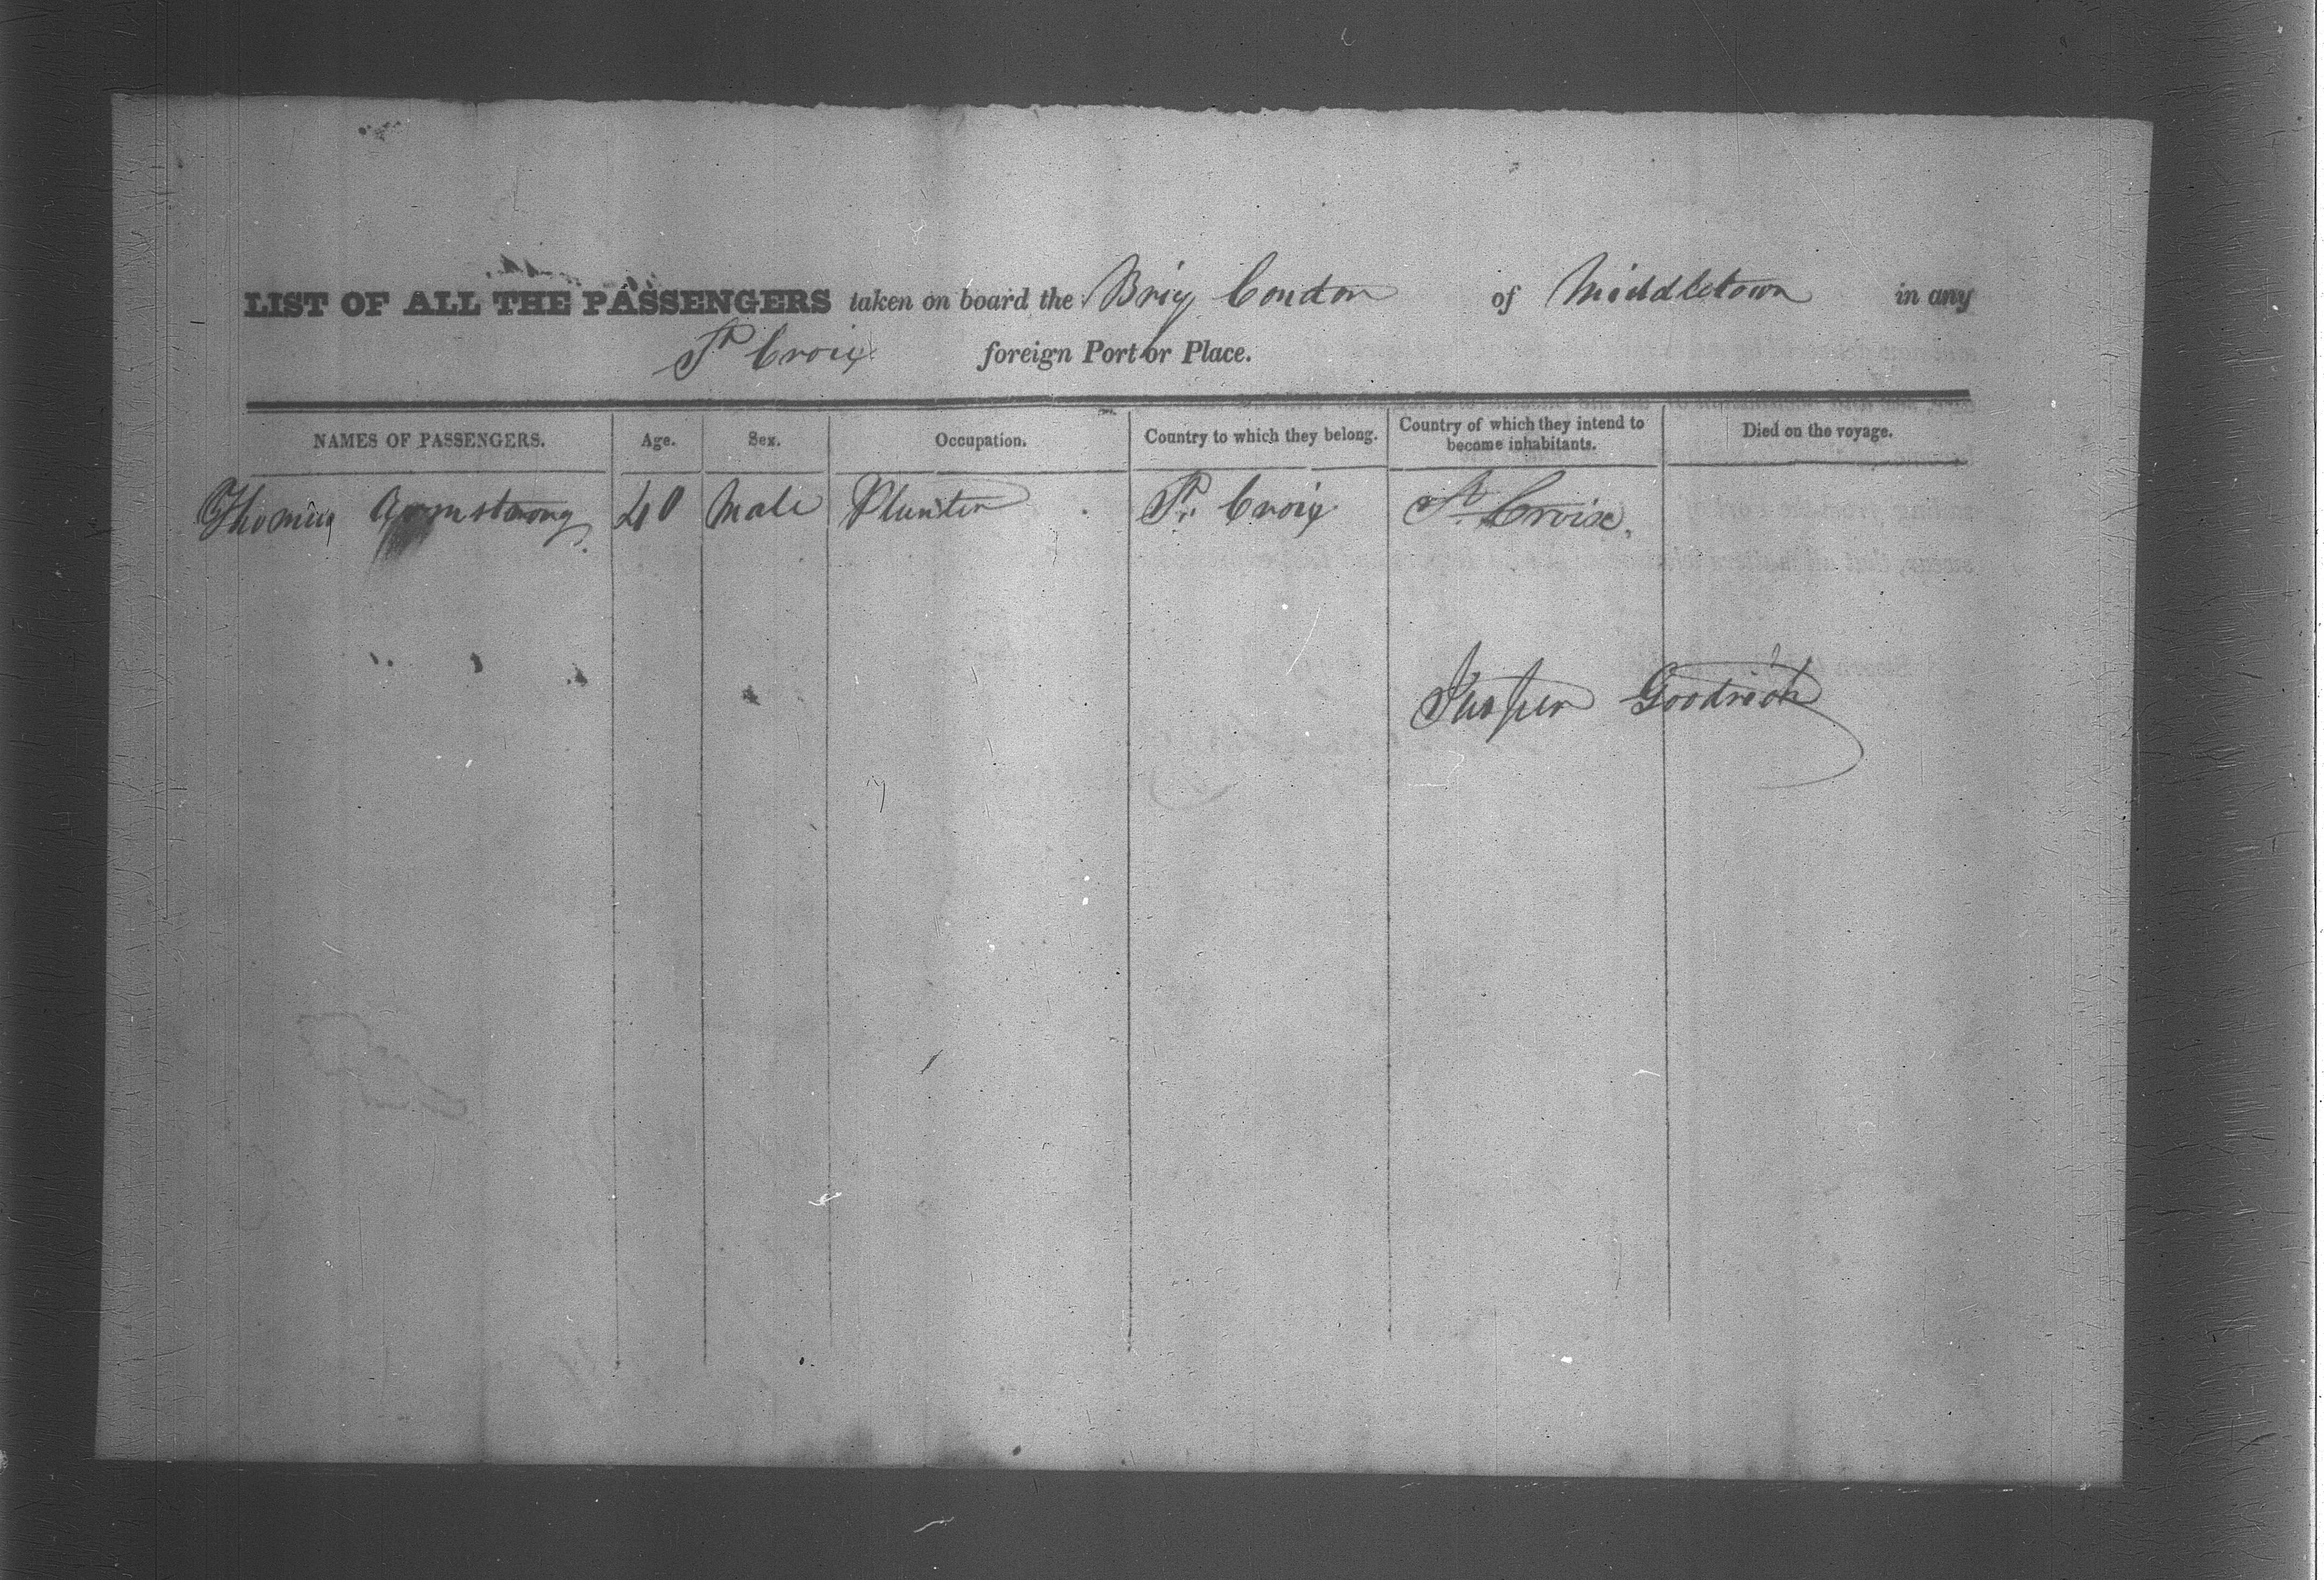 LIST OF ALL THE PASSENGERS taken on board the Brig Condor of Middletown in any
St Croix foreign Port or Place.
NAMES OF PASSENGERS. Age. Sex. Occupation. Country to which they belong. Country of which they intend to become inhabitants. Died on the voyage.
Thomas Armstrong. 40 Male Planter St. Croix St. Croix.
Jasper Goodrich